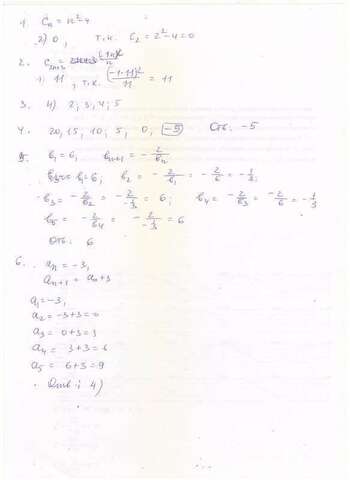 1. Cₙ = n² - 4
2) 0, т.к. C₂ = 2² - 4 = 0
2.
1) 11, т.к. (-1·11)²/11 = 11
3. 4) 2; 3; 4; 5
4. 20, 15, 10, 5, 0, -5 Отв: -5
5. b₁ = 6, bₙ₊₁ = - 2/bₙ
b₁ = 6; b₂ = - 2/b₁ = - 2/6 = - 1/3;
b₃ = - 2/b₂ = - 2/-1/3 = 6; b₄ = - 2/b₃ = - 2/6 = - 1/3
b₅ = - 2/b₄ = - 2/-1/3 = 6
Отв: 6
6. aₙ = -3,
aₙ₊₁ = aₙ + 3
a₁ = -3,
a₂ = -3+3=0
a₃ = 0+3=3
a₄ = 3+3=6
a₅ = 6+3=9
4)